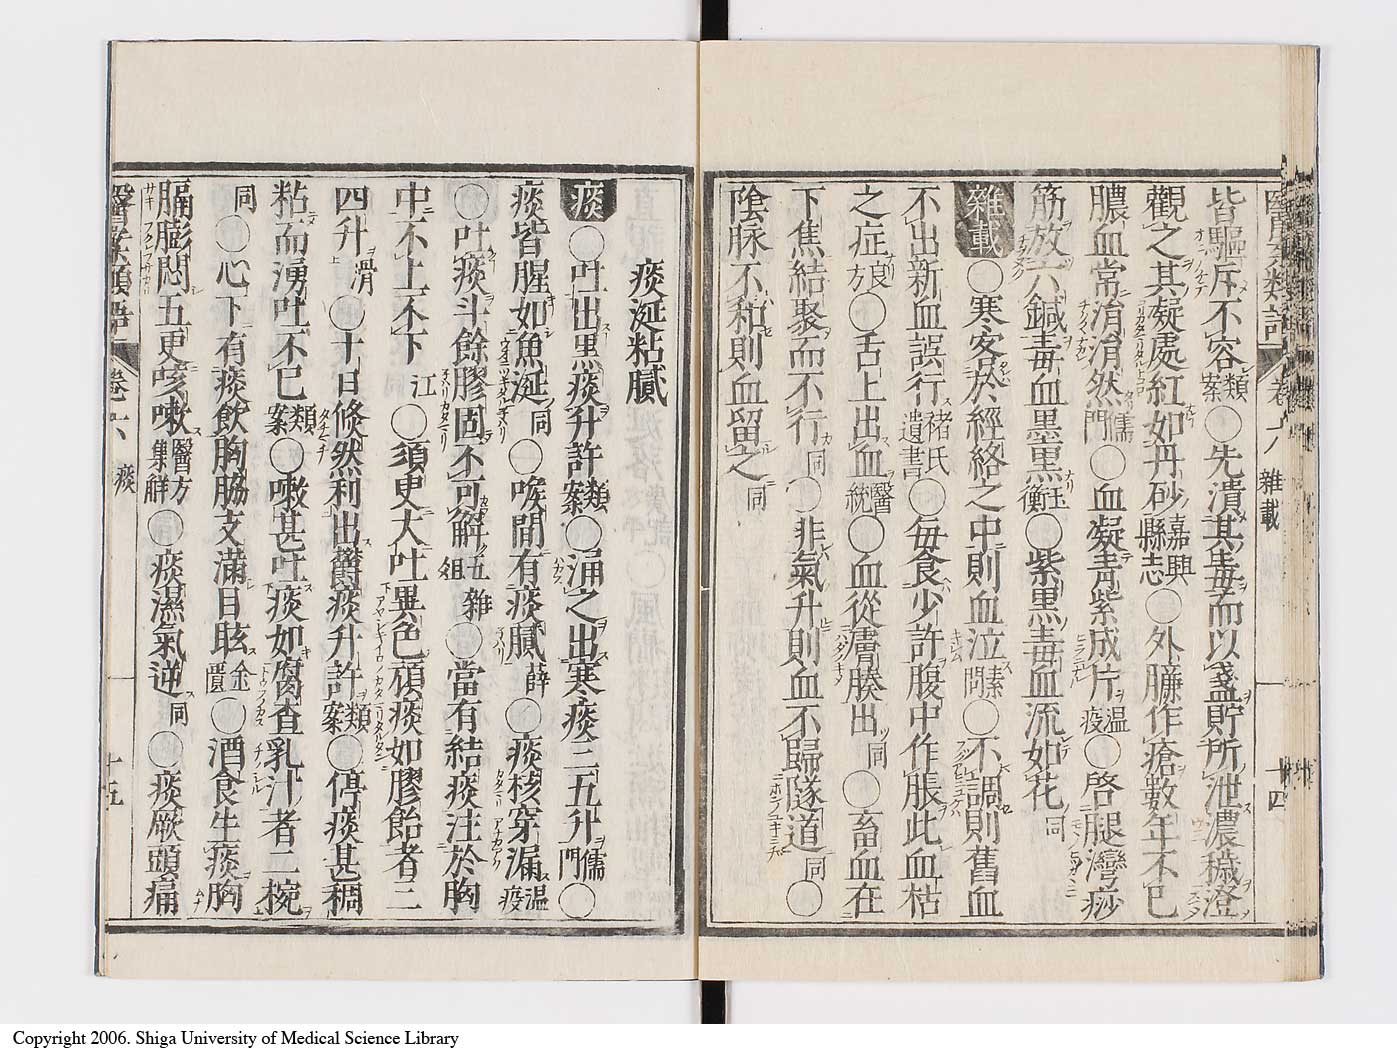 皆驅斥不容類案○先潰其毒而以盞貯所泄濃穢澄
觀之其凝處紅如丹砂嘉興縣志○外臁作瘡數年不已
膿血常涓涓然儒門○血凝青紫成片温疫○啓腿灣痧
筋放六鍼毒血黒黒玉衡○紫黒毒血流如花同
雜載○寒客於經絡之中則血泣素問○不調則舊血
不出新血誤行褚氏遺書○毎食少許腹中作脹此血枯
之症良方○舌上出血醫統○血從膚腠出同○畜血在
下焦結聚而不行同○非氣升則血不歸隧道同○
陰脉不和則血留之同
雜載
十四
痰涎粘膩
痰○吐出黒痰升許類案○涌之出寒痰三五升儒門○
痰皆腥如魚涎同○喉間有痰膩薛○痰核穿漏温疫
○吐痰斗餘膠固不可解五雜俎○當有結痰注於胸
中不上不下江○須臾大吐異色頑痰如膠飴者三
四升滑○十日倏然利出欝痰升許類案○停痰甚稠
粘而湧吐不已類案○嗽甚吐痰如腐査乳汁者二椀
同○心下有痰飲胸脇支滿目眩金匱○酒食生痰胸
膈膨悶五更咳嗽醫方集解○痰濕氣逆同○痰厥頭痛
卷六 痰
十五
Copyright 2006. Shiga University of Medical Science Library